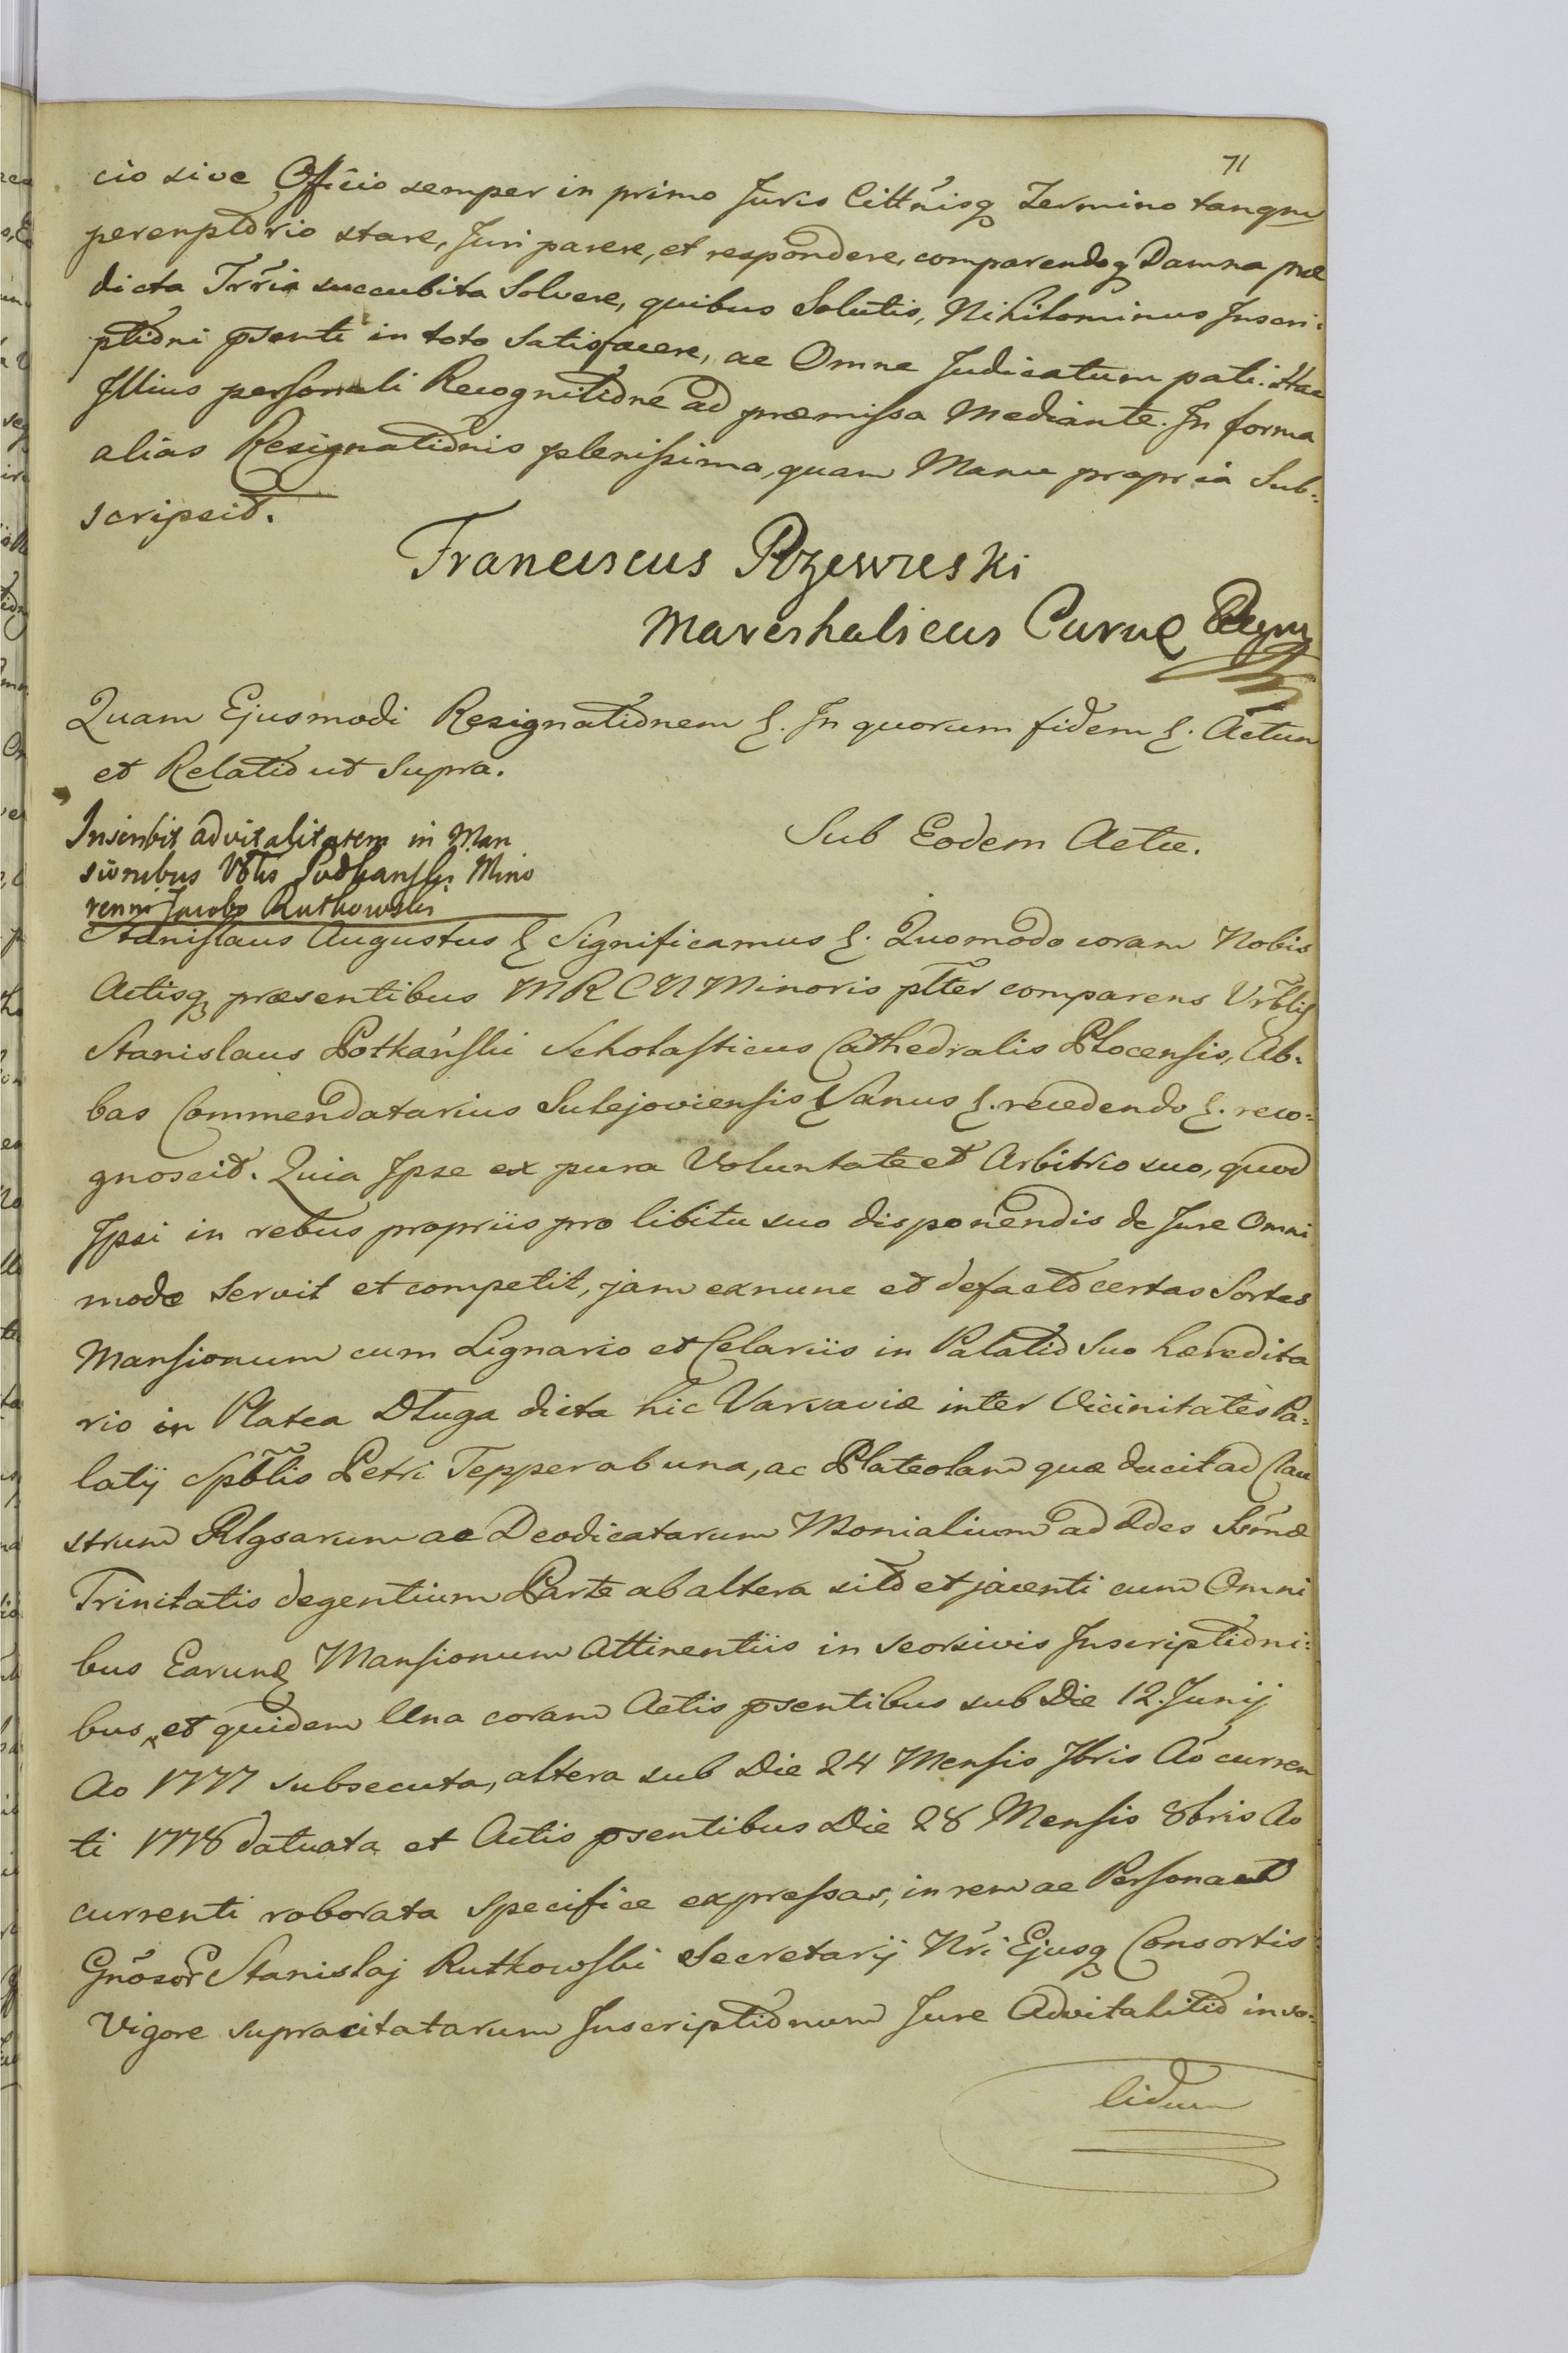 71
cio sive Officio semper in primo Juris Cittńisq Termino tanqm
peremptorio stare, Juri parere, et respondere, comparendoq Damna præ
dicta Trria succubita Solvere, quibus Solutis, Nihilominus Inscri:
ptioni psenti in toto Satisfacere, ac Omne Judicatum pati. Hac
Illius personali Recognitione ad præmissa Mediante. In forma
alias Resignationis plenissima, quam Manu propria Sub:
scripsit.
Franciscus Rzewuski
Mareshalscus Curiæ
Quam Ejusmodi Resignationem &. In quorum fidem &. Actum
et Relatio ut Supra.
Sub Eodem Actu.
Inscribit advitalitatem in Man
sionibus Minorennr Jacobo Rutkowski
Stanislaus Augustus & Significamus &. Quomodo coram Nobis
Actisq præsentibus MRCN Minoris pltter comparens Vrblis
Stanislaus Potkański Scholasticus Cathedralis Plocensis, Ab:
bas Commendatarius Sulejoviensis Sanus &. recedendo &. reco:
gnoscit. Quia Ipse ex pura Voluntate et Arbitrio suo, quod
Ipsi in rebus propriis pro libitu suo disponendis de Jure Omni
mode Servit et competit, jam exnunc et defacto certas Sortes
Mansionum cum Lignario et Celariis in Palatio Suo hæredita
rio in Platea Długa dicta hic Varsaviæ inter Vicinitates Pa:
latij Spblis Petri Tepper ab una, ac Plateolam quæ ducit ad Clau
strum Rlgsarum ac Deodicatarum Monialium ad Ædes Ssmæ
Trinitatis degentium Parte ab altera sito et jacenti cum Omni
bus Earund Mansionum Attinentiis in seorsivis Inscriptioni:
bus, et quidem Una coram Actis psentibus sub Die 12. Junij
Ao 1777 subsecuta, altera sub Die 24 Mensis 7bris Ao curren
ti 1778 datuata et Actis psentibus Die 28 Mensis 8bris Ao
currenti roborata specifice expressas, in rem ac Personas
Gnosor Stanislaj Rutkowski Secretarij Nri Ejusq Consortis
Vigore supracitatarum Inscriptionum Jure Advitalitio in so:
lidum